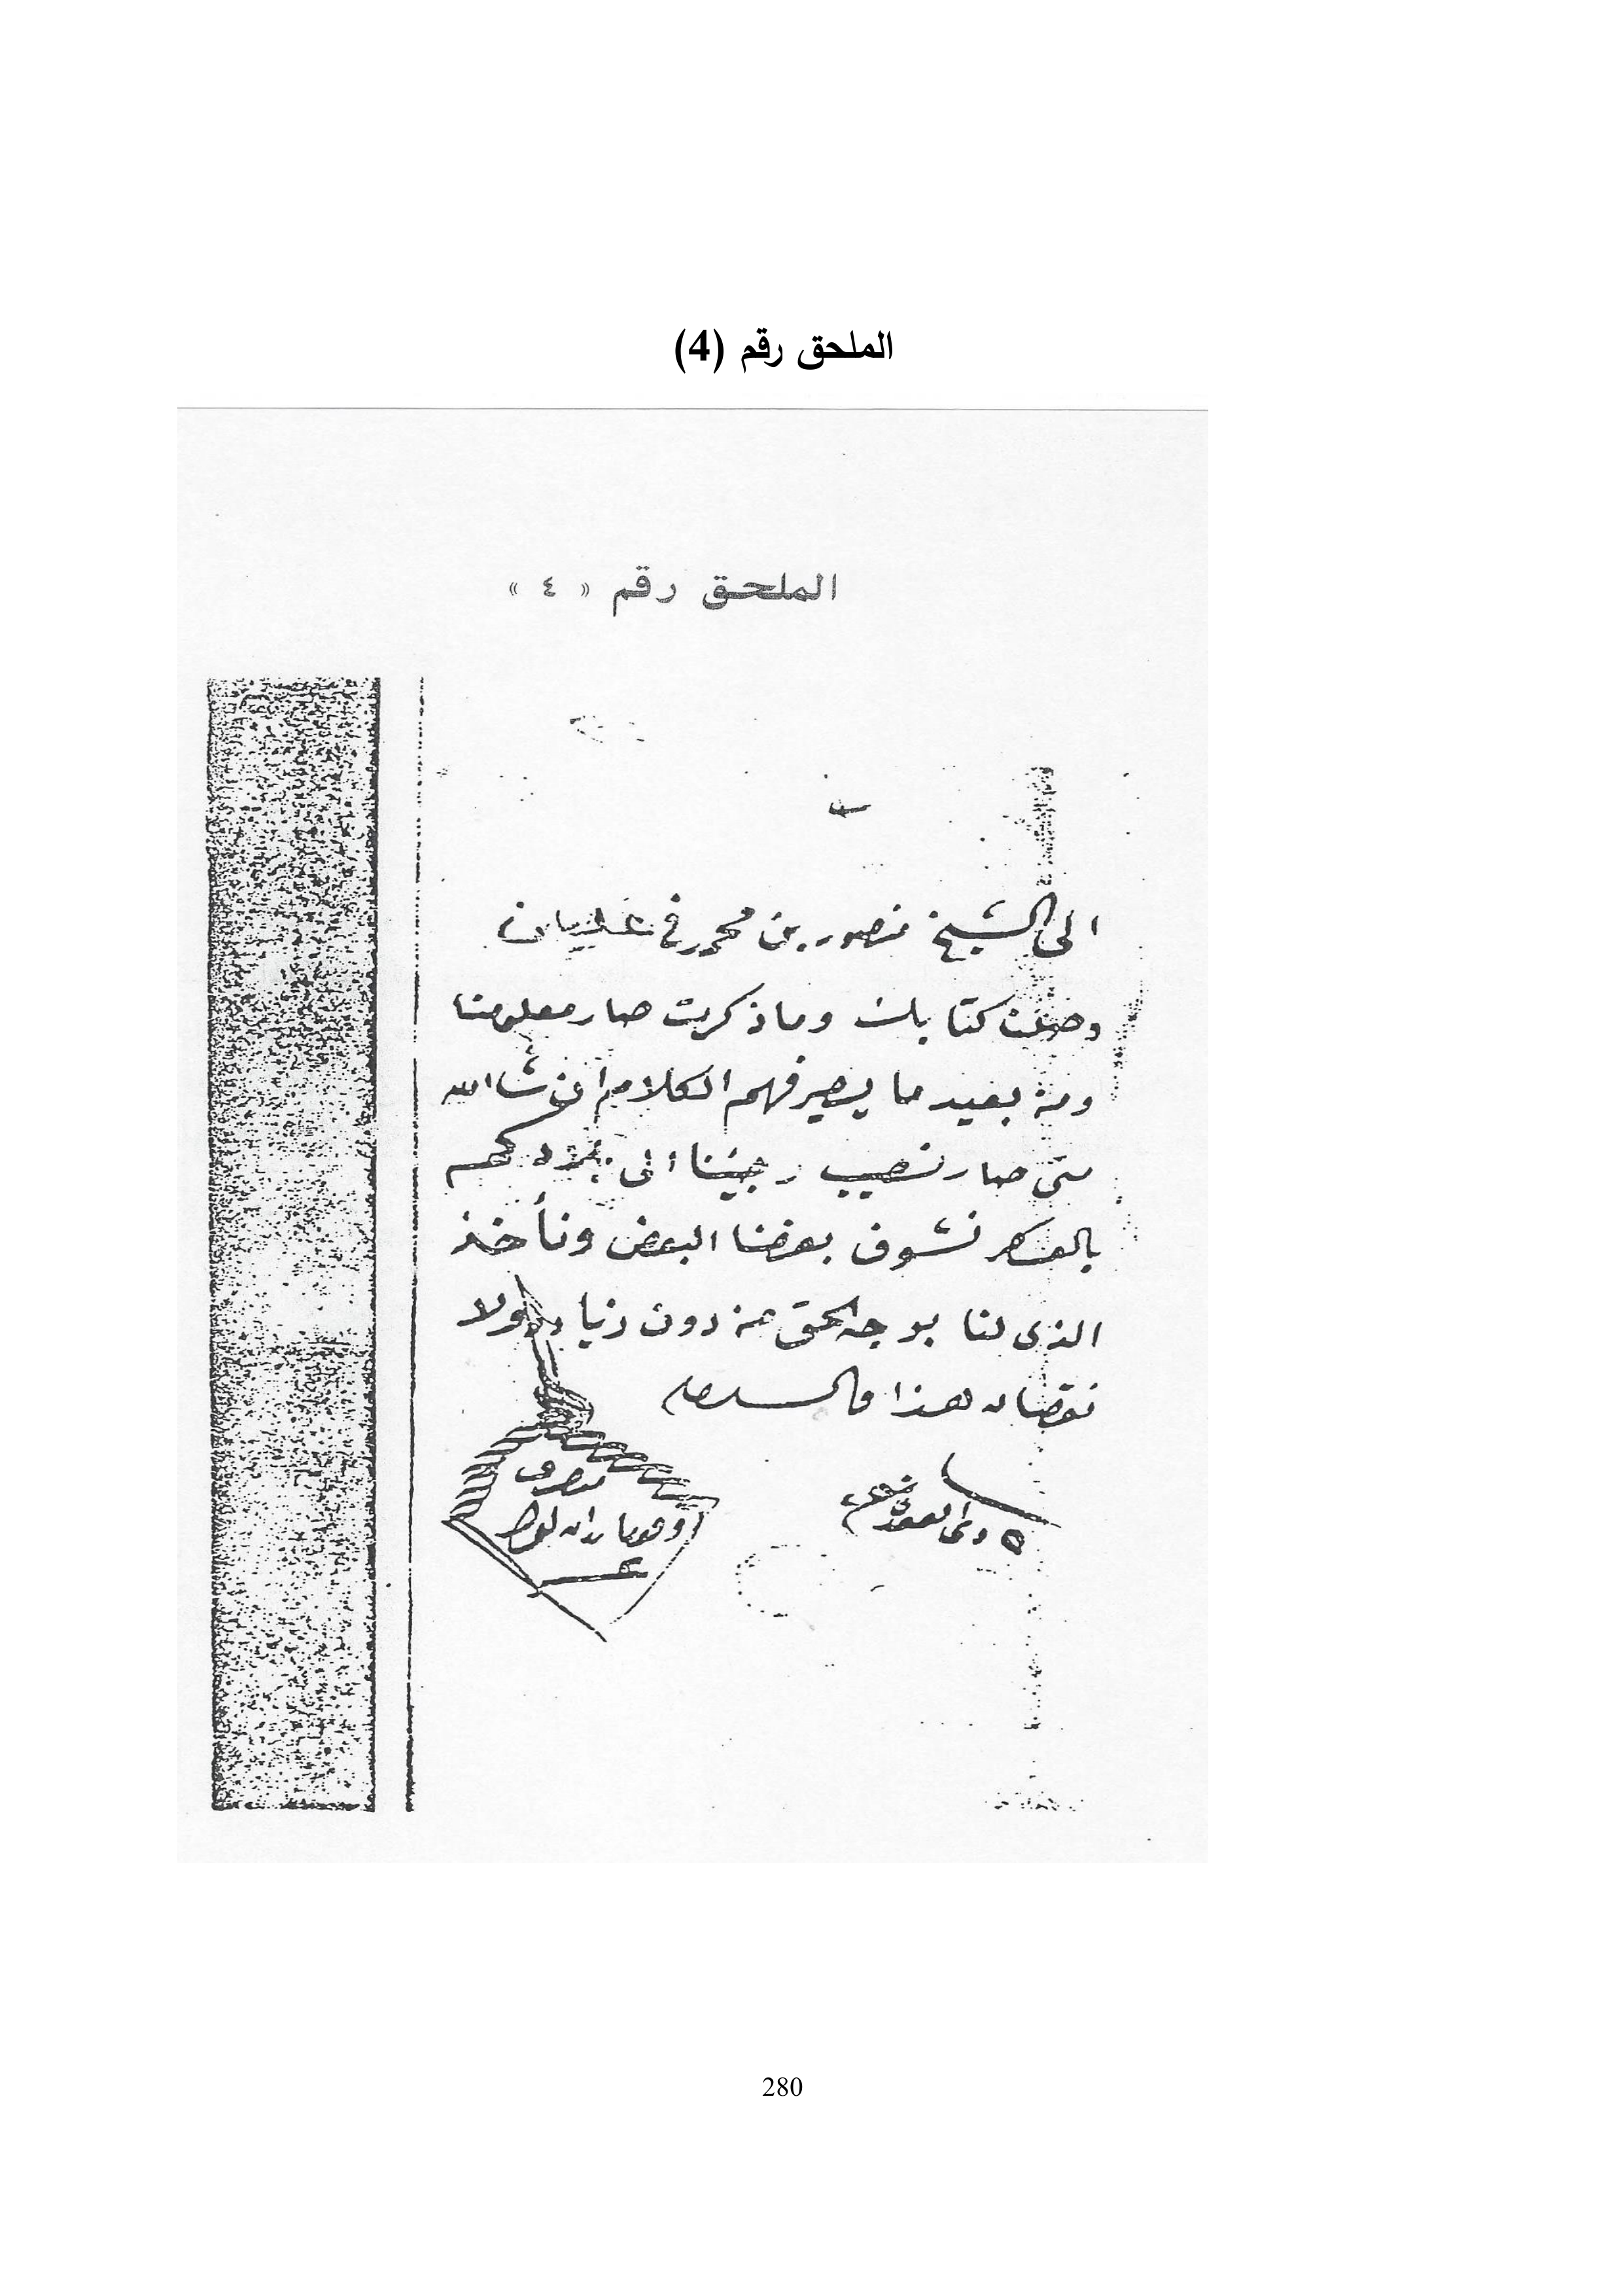 الملحق رقم (4)
الملحق رقم « ٤ »
الى الشيخ منصور بن محمد في غليان
وصلنا كتابك وما ذكرت صار معلومنا
ومن بعيد ما يصير فهم الكلام ان شاالله
متى صار نصيب وجينا الى بلادكم
بالعسكر نشوف بعضنا البعض ونأخذ
الذى لنا بوجه الحق من دون زياده ولا
نقصان هذا والسلام
٥ ذى القعدة
متصرف
280